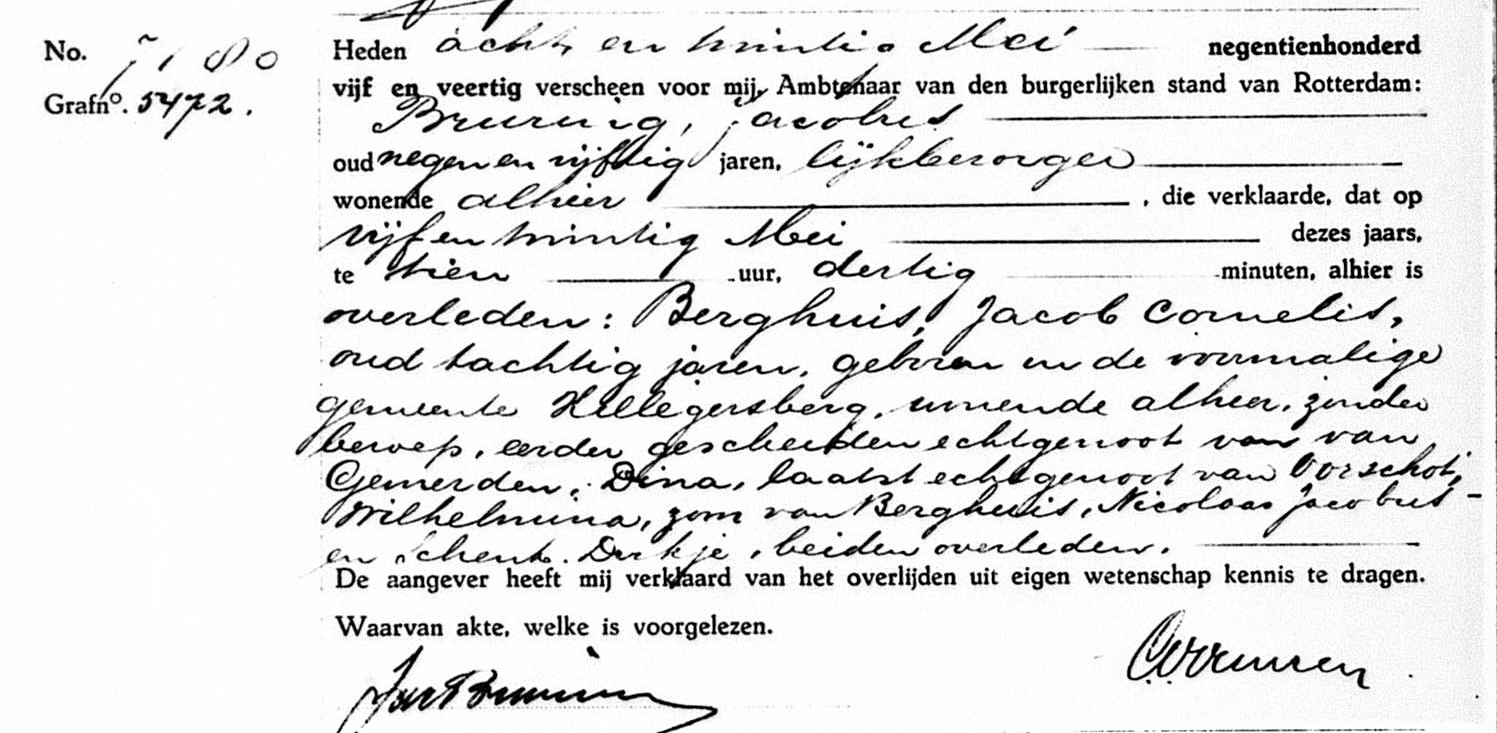 No. 7180
Grafno. 5472.
Heden acht en twintig Mei negentienhonderd
vijf en veertig verscheen voor mij, Ambtenaar van den burgerlijken stand van Rotterdam:
Bruring, Jacobus
oud negen en vijftig jaren, lijkbezorger
wonende alhier, die verklaarde, dat op
vijf en twintig Mei dezes jaars,
te tien uur, dertig minuten, alhier is
overleden: Berghuis, Jacob Cornelis,
oud tachtig jaren, geboren in de voormalige
gemeente Hillegersberg, wonende alhier, zonder
beroep, eerder gescheiden echtgenoot van van
Gemerden, Dina, laatst echtgenoot van Oorschot,
Wilhelmina, zoon van Berghuis, Nicolaas Jacobus
en Schenk, Dirkje, beiden overleden.
De aangever heeft mij verklaard van het overlijden uit eigen wetenschap kennis te dragen.
Waarvan akte, welke is voorgelezen.